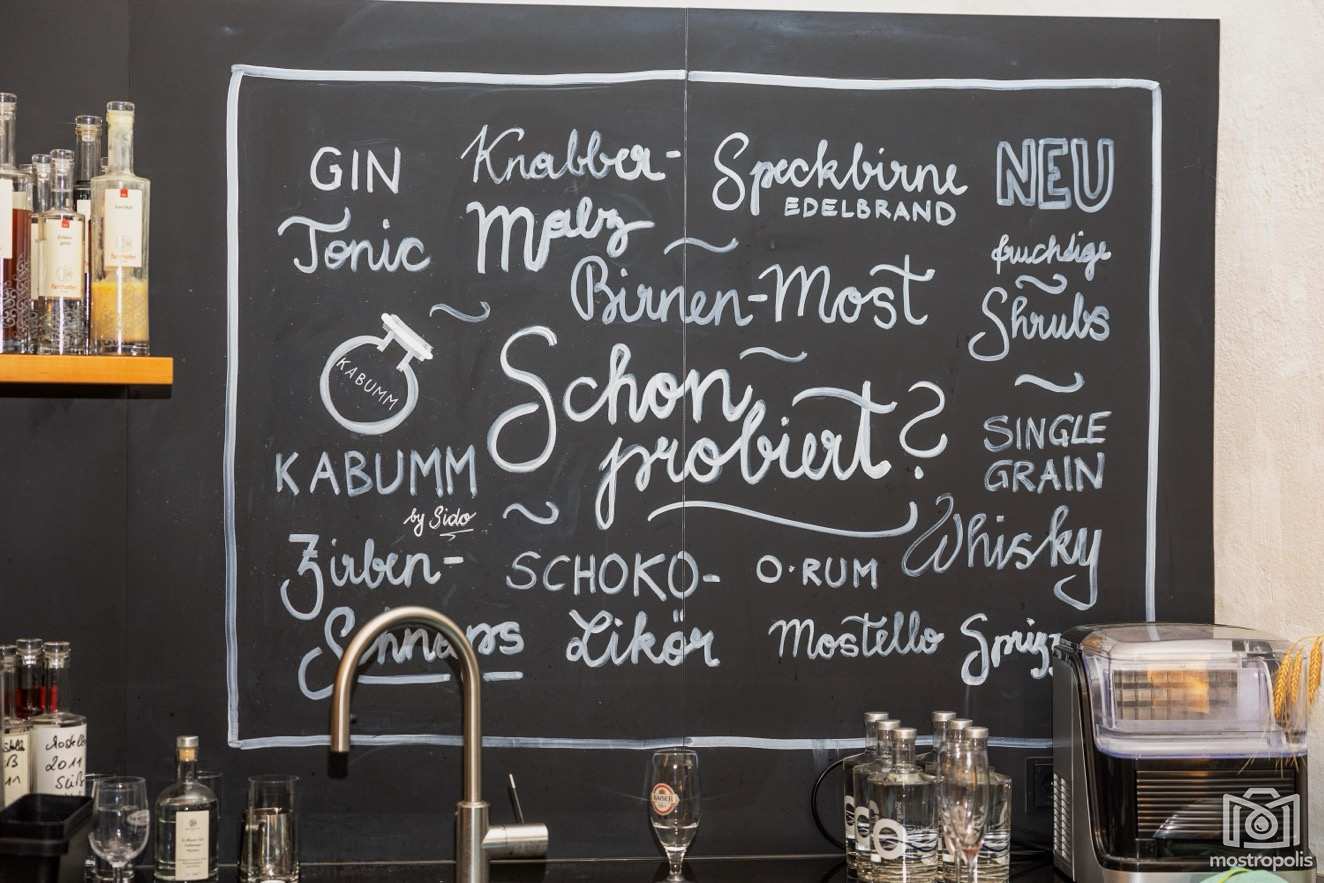 GIN
Tonic
Knabber-
Malz
Speckbirne
EDELBRAND
NEU
fruchtige
Shrubs
Birnen-Most
KABUMM
KABUMM
by Sido
Schon
probiert?
SINGLE
GRAIN
Whisky
Zirben-
Schnaps
SCHOKO-
Likör
O·RUM
Mostello
2011
KAISER
mostropolis